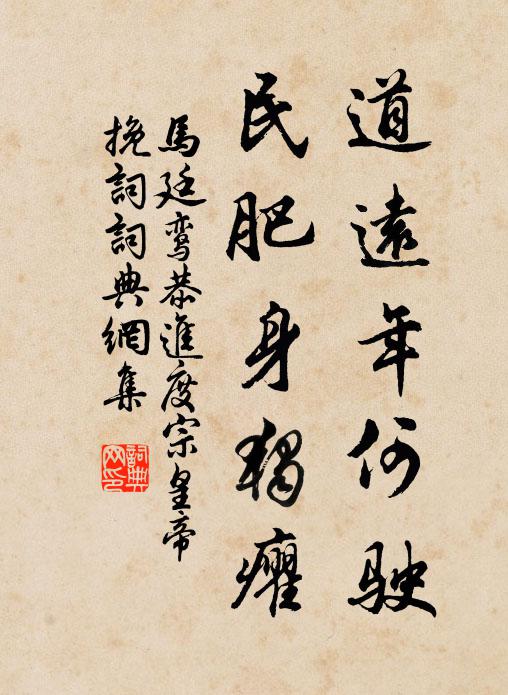 道遠年何駛
民肥身獨癯
馬廷鸾恭進度宗皇帝
挽詞詞典網集
詞典
网印